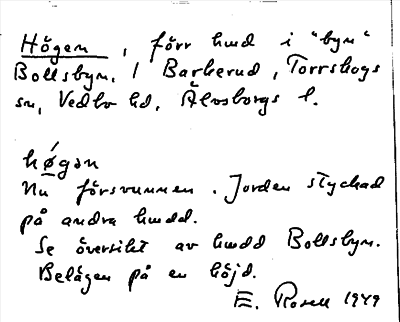 Högen, förr hmd i "byn"
Bollsbyn, 1 Barkerud, Torrskogs
sn, Vedbo hd, Älvsborgs l.
hǿgən
Nu försvunnen. Jorden styckad
på andra hmdd.
Se översikt av hmdd Bollsbyn.
Belägen på en höjd.
E. Rosell 1949